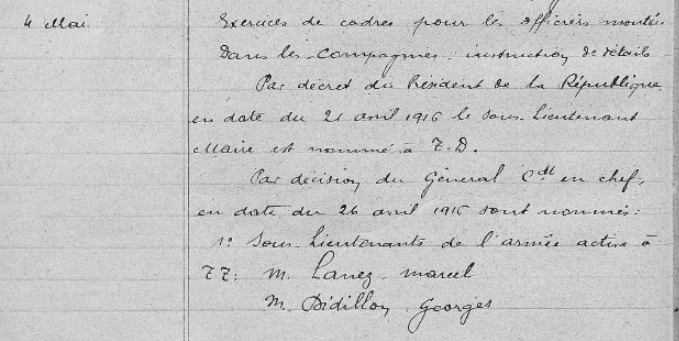 4 Mai
Exercices de cadres pour les officiers montés
Dans les compagnies : instruction de détails
Par décret du Président de la République,
en date du 21 avril 1916 le sous-Lieutenant
Maire est nommé à T.D.
Par décision du Général Cdt en chef,
en date du 26 avril 1916 sont nommés :
1º Sous-Lieutenants de l'armée active à
TT : M. Lanez Marcel
M. Didillon Georges